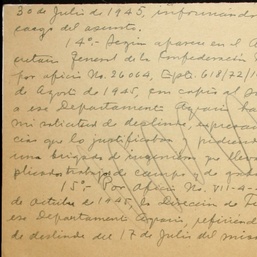 30 de Julio de 1945, informándo
cargo del asunto.
14°.- Según aparece en el A
General de la Confederación
por oficio No. 26064, Cpte. 618/72/1
de Agosto de 1945, con copia al
a ese Departamento Agrario ha
mi solicitud de deslinde,
cias que lo justificaba y pidiendo
una brigada de ingenieros que lleva
trabajos de campo y de gab
15°.- Por oficio No. VII-4-
de octubre de 1945, la Dirección de
ese Departamento Agrario, refiriendo
de deslinde del 17 de Julio del mismo